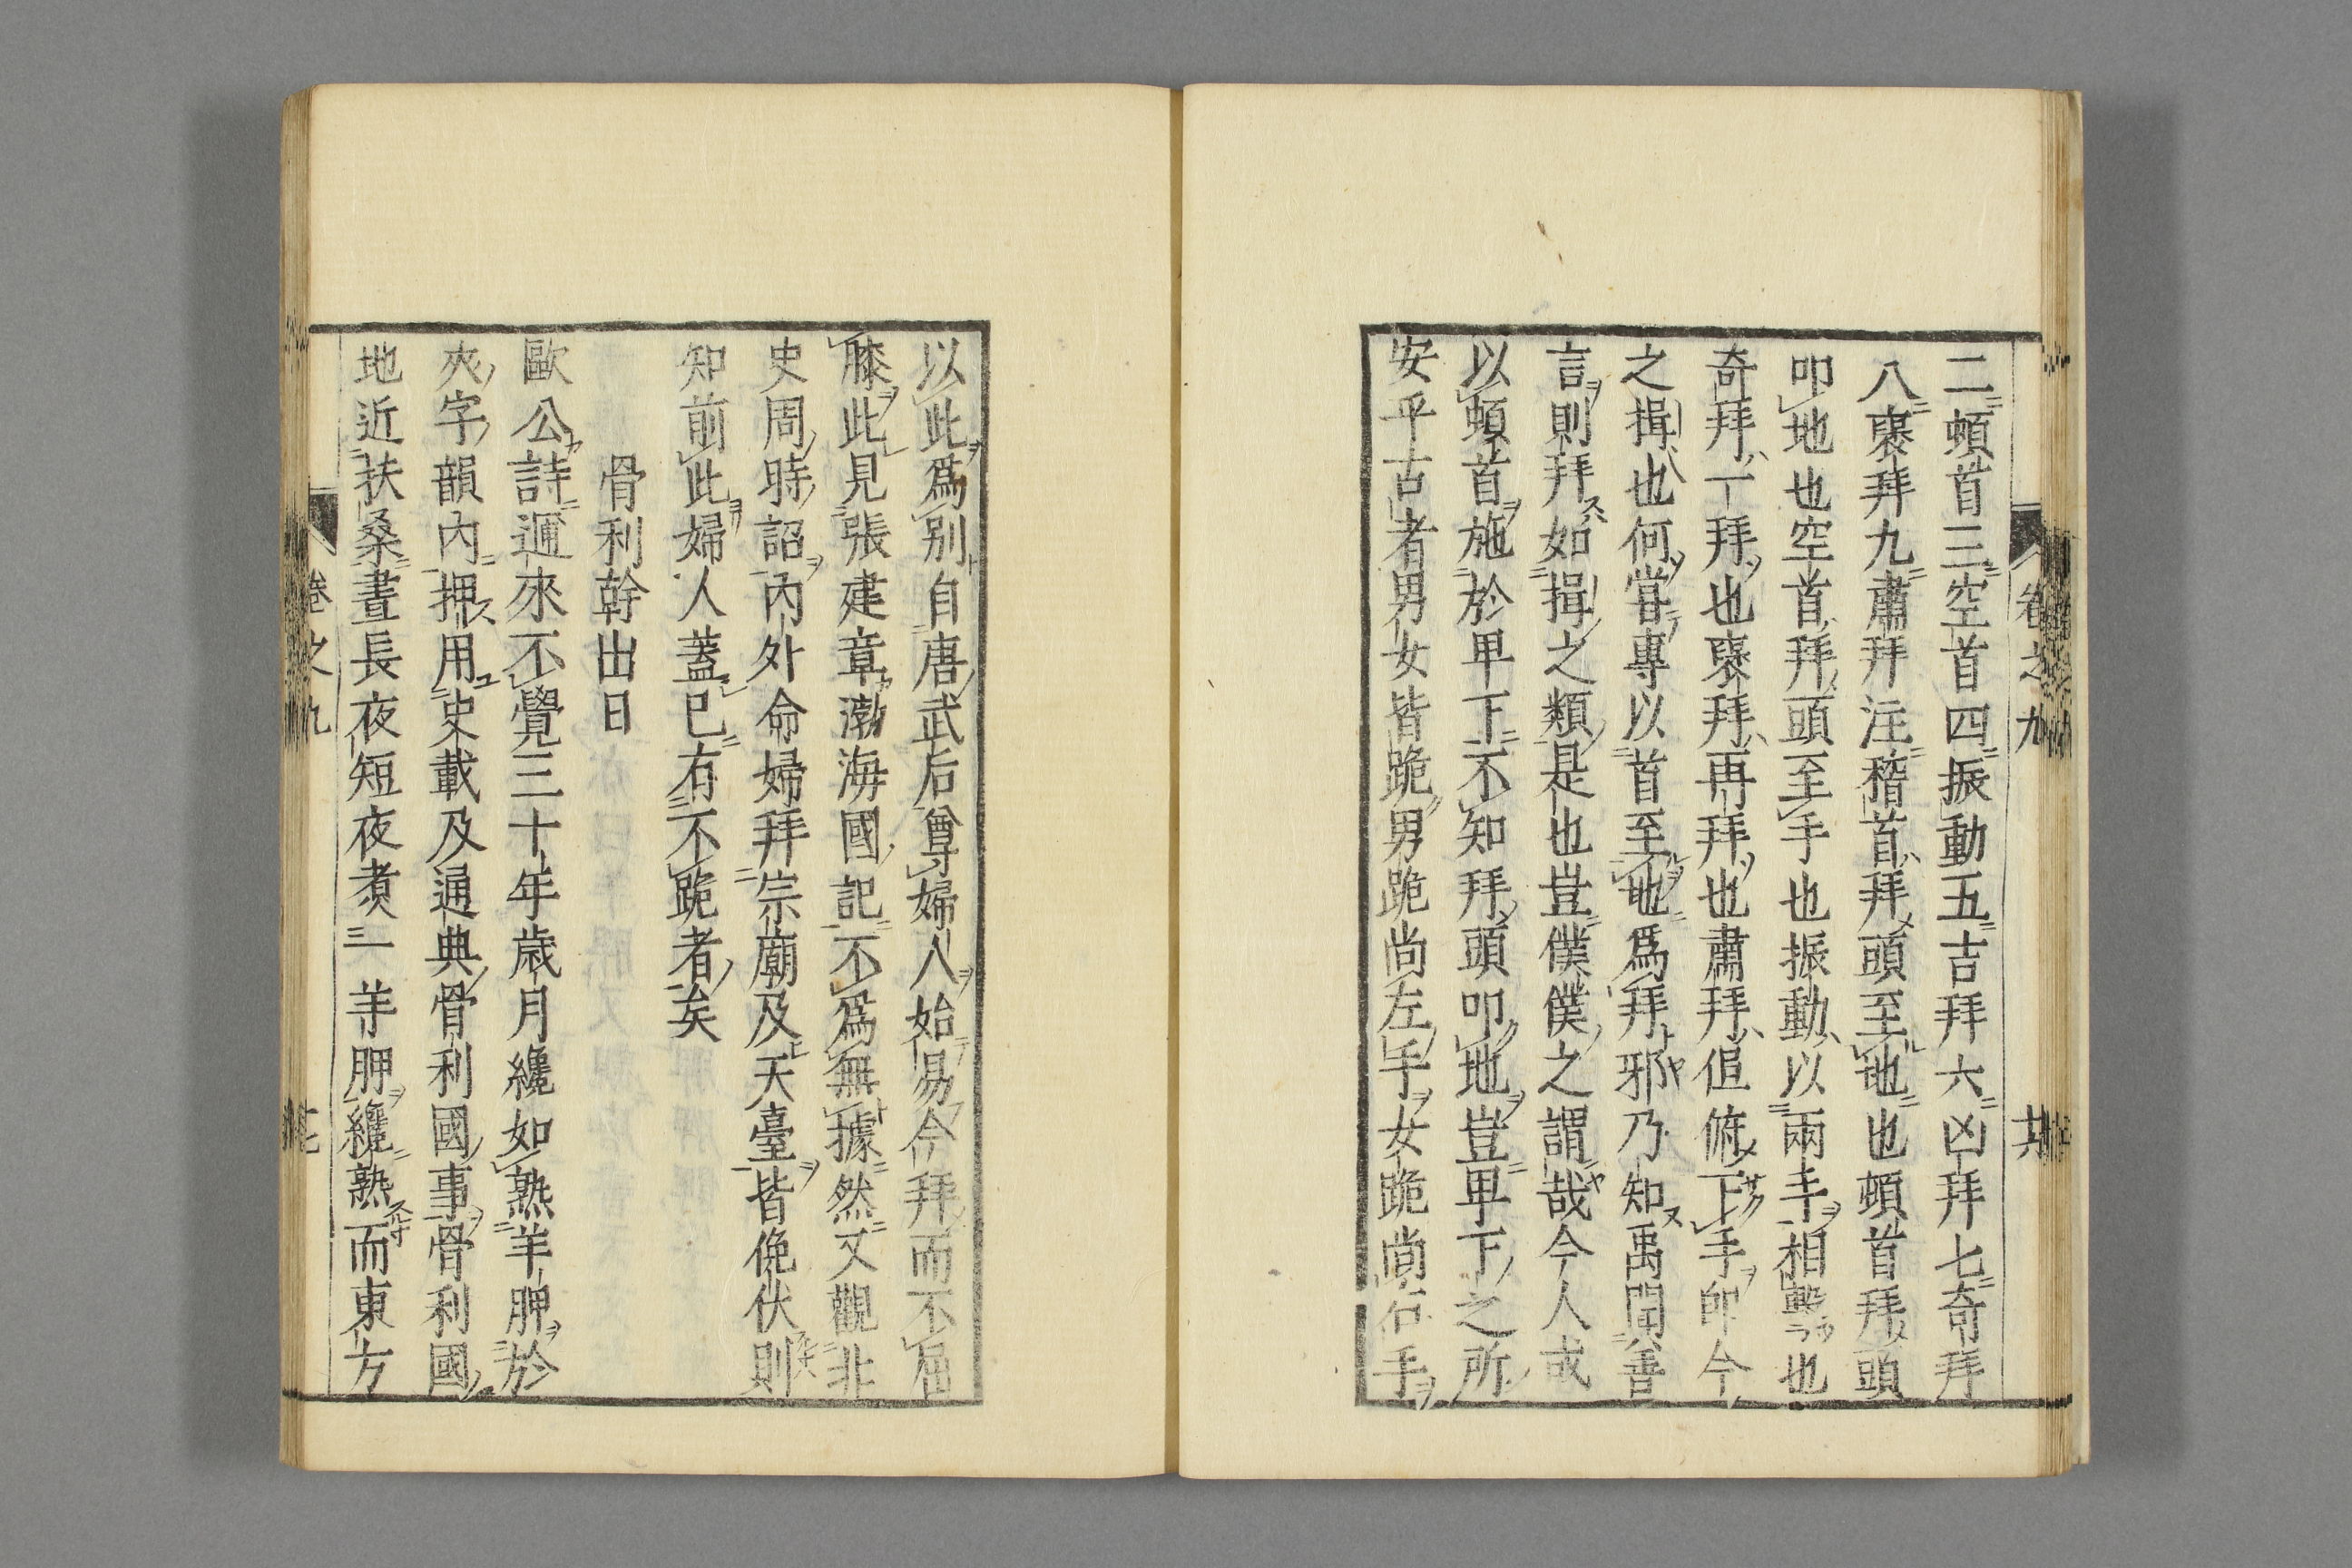 卷之九
二頓首三空首四振動五吉拜六凶拜七奇拜
八褒拜九肅拜注稽首拜頭至地也頓首拜頭
叩地也空首拜頭至手也振動以兩手相擊也
奇拜一拜也褒拜再拜也肅拜但俯下手即今
之揖也何嘗專以首至地爲拜邪乃知禹聞善
言則拜如揖之類是也豈僕僕之謂哉今人或
以頓首施於甲下不知拜頭叩地豈甲下之所
安乎古者男女皆跪男跪尚左手女跪尚右手
以此爲別自唐武后尊婦人始易今拜而不屈
膝此見張建章渤海國記不爲無據然又觀北
史周時詔內外命婦拜宗廟及天臺皆俛伏則
知前此婦人蓋已有不跪者矣
骨利幹出日
歐公詩邇來不覺三十年歲月纔如熟羊胛於
夾字韻內押用史載及通典骨利國事骨利國
地近扶桑晝長夜短夜煑一羊胛纔熟而東方
卷之九